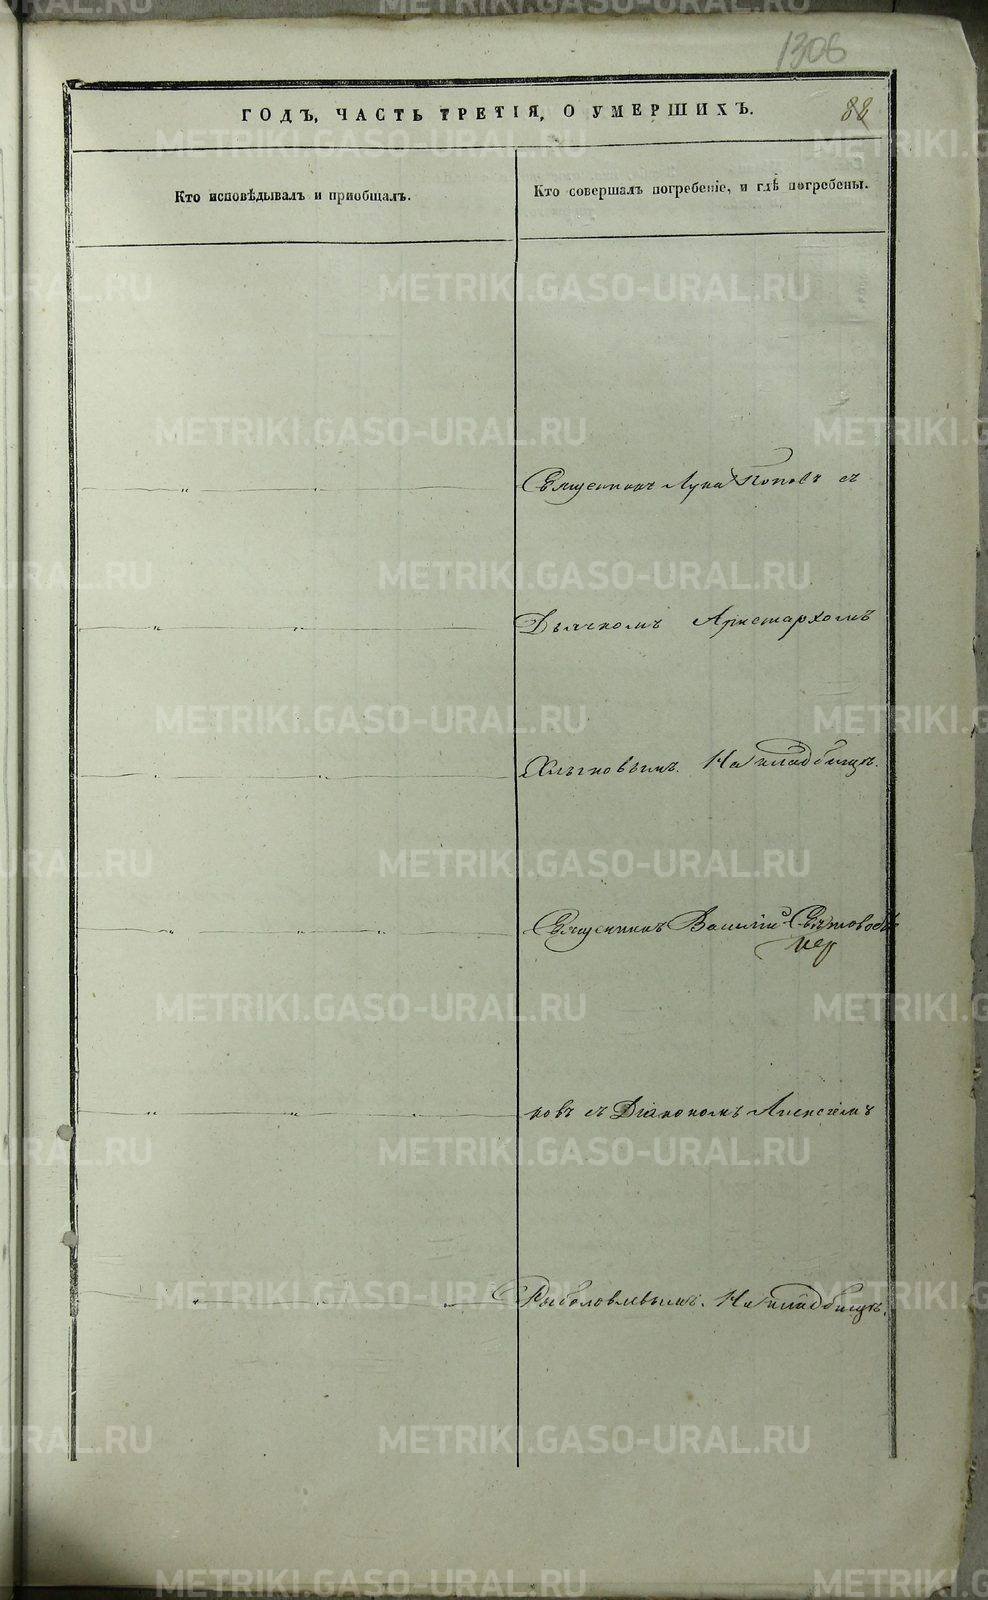 1306
ГОДЪ, ЧАСТЬ ТРЕТІЯ, О УМЕРШИХЪ.
88
Кто исповѣдывалъ и пріобщалъ.
Кто совершалъ погребеніе, и гдѣ погребены.
Священникъ Лука Поповъ съ
Дьячкомъ Аристархомъ
Хлыновымъ. На кладбищѣ.
Священникъ Василій
новъ съ Діакономъ Алексіемъ
Рыболовлевымъ. На кладбищѣ.
METRIKI.GASO-URAL.RU